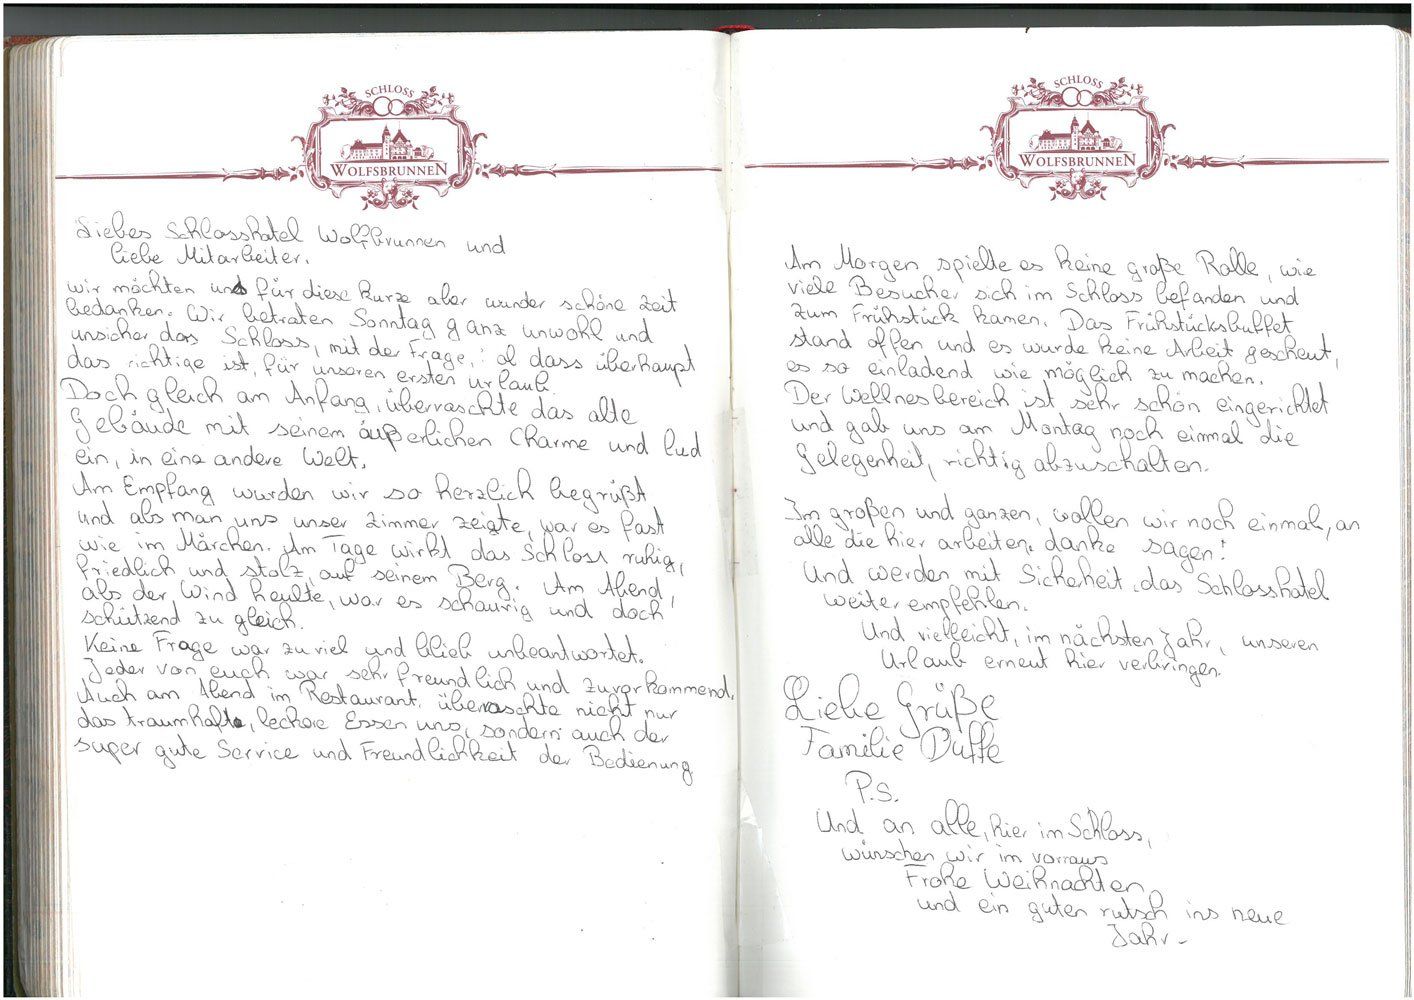 SCHLOSS
WOLFSBRUNNEN
Liebes Schlosshotel Wolfbrunnen und
liebe Mitarbeiter.
wir möchten uns für diese kurze aber wunder schöne Zeit
bedanken. Wir betraten Sonntag ganz unwohl und
unsicher das Schloss, mit der Frage,: ob dass überhaupt
das richtige ist, für unseren ersten Urlaub.
Doch gleich am Anfang, überraschte das alte
Gebäude mit seinem äußerlichen Charme und lud
ein, in eine andere Welt.
Am Empfang wurden wir so herzlich begrüßt
und als man uns unser Zimmer zeigte, war es fast
wie im Märchen. Am Tage wirkt das Schloss ruhig,
friedlich und stolz, auf seinem Berg. Am Abend,
als der Wind heulte, war es schaurig und doch
schützend zu gleich.
Keine Frage war zu viel und blieb unbeantwortet.
Jeder von euch war sehr freundlich und zuvorkommend.
Auch am Abend im Restaurant, überraschte nicht nur
das traumhafte, leckere Essen uns, sondern auch der
super gute Service und Freundlichkeit der Bedienung
SCHLOSS
WOLFSBRUNNEN
Am Morgen spielte es keine große Rolle, wie
viele Besucher sich im Schloss befanden und
zum Frühstück kamen. Das Frühstücksbuffet
stand offen und es wurde keine Arbeit gescheut,
es so einladend wie möglich zu machen.
Der Wellnesbereich ist sehr schön eingerichtet
und gab uns am Montag noch einmal die
Gelegenheit, richtig abzuschalten.
Im großen und ganzen, wollen wir noch einmal, an
alle die hier arbeiten, danke sagen!
Und werden mit Sicherheit, das Schlosshotel
weiter empfehlen.
Und vielleicht, im nächsten Jahr, unseren
Urlaub erneut hier verbringen.
Liebe Grüße
Familie Duffe
P.S.
Und an alle, hier im Schloss,
wünschen wir im vorraus
Frohe Weihnachten
und ein guten rutsch ins neue
Jahr.